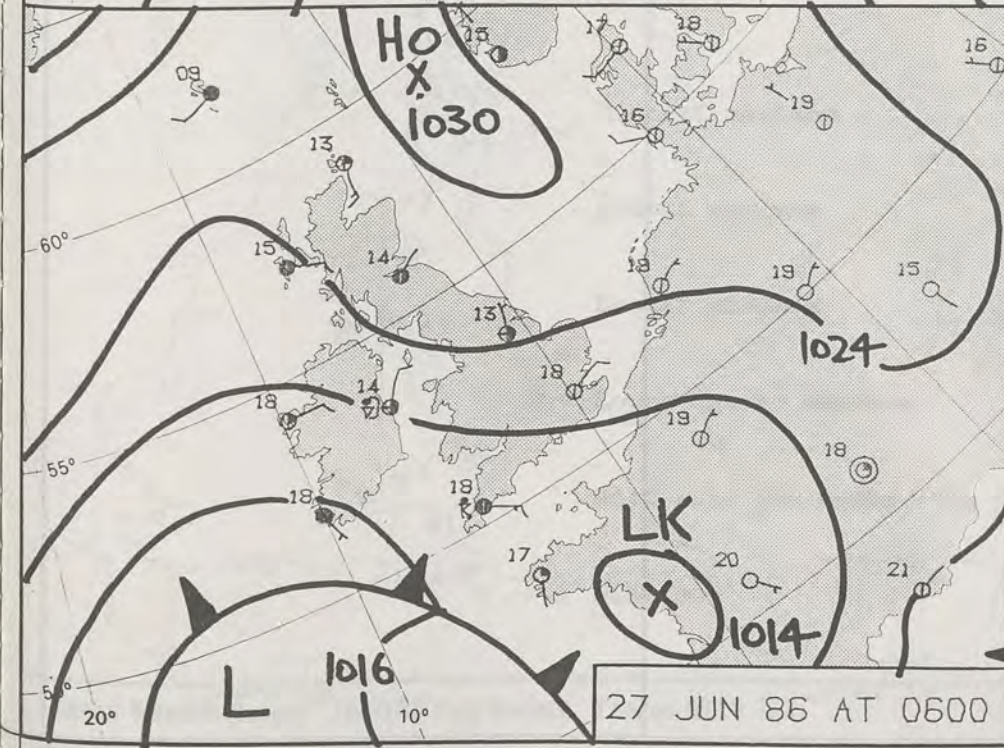 HO
1030
15
17
18
16
09
19
16
13
60°
15
14
13
19
15
18
1024
14
18
18
19
18
55°
18
18
LK
17
20
21
1014
L
1016
20°
10°
27 JUN 86 AT 0600